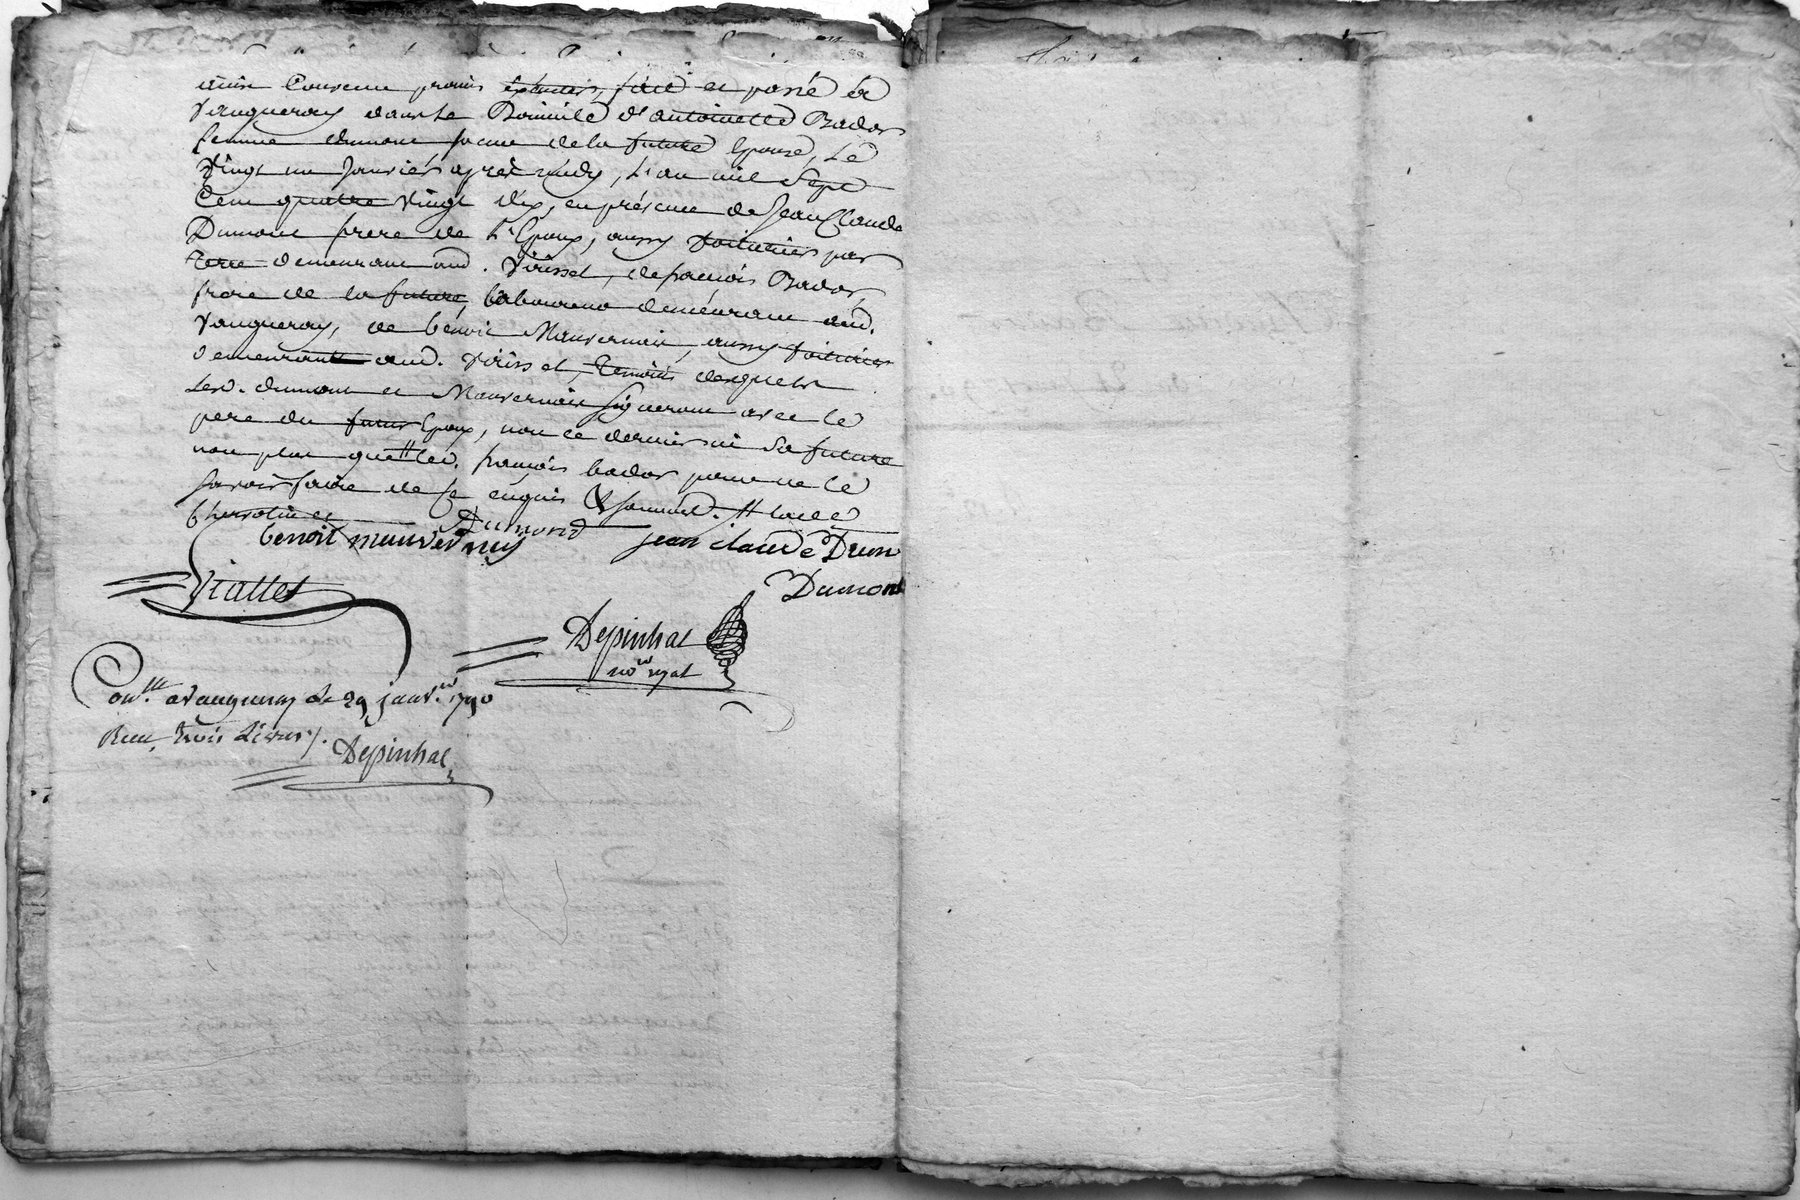 ainsi Convenu promis fait et passé à
Vaugneray dans le Domicile d'antoinette Bador
femme dumont soeur de la future Epouse, Le
Vingt un Janvier après midy, L'an mil Sept
Cent quatre Vingt dix, en présence de Jean Claude
Dumont frere de L'Epoux, aussy Voiturier par
Terre demeurant aud. , de françois Bador
frere de la future, laboureur demeurant aud.
Vaugneray, de benoit Mauvernais, aussy Voiturier
demeurant aud. , Temoins desquels
Lesd. dumont et Mauvernais Signeront avec le
pere du futur Epoux, non ce dernier ni Sa future
non plus que led. françois bador pour ne le
Savoir faire de ce enquis & Sommés.
Dumond
benoit mauvernay jean claude Dum
Dumont
Viallet
Depinhac
no.re royal
Con.lé a Vaugneray le 29 janv.er 1790
Recu trois Livres.
Depinhac